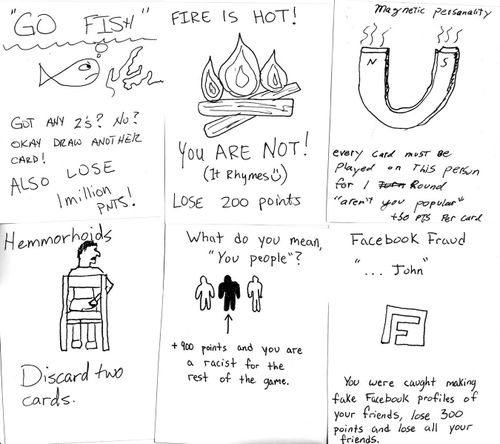 "GO FISH"
GOT ANY 2's? NO?
OKAY DRAW ANOTHER
CARD!
ALSO LOSE
1 million
PNTS!
FIRE IS HOT!
YOU ARE NOT!
(It Rhymes)
LOSE 200 points
Magnetic personality
N S
every card must be
played on This person
for 1 Turn Round
"aren't you popular"
+50 PTS Per card
Hemmorhoids
Discard two
cards.
What do you mean,
"You people"?
+900 points and you are
a racist for the
rest of the game.
Facebook Fraud
"... John"
F
You were caught making
fake Facebook profiles of
your friends, lose 300
points and lose all your
friends.